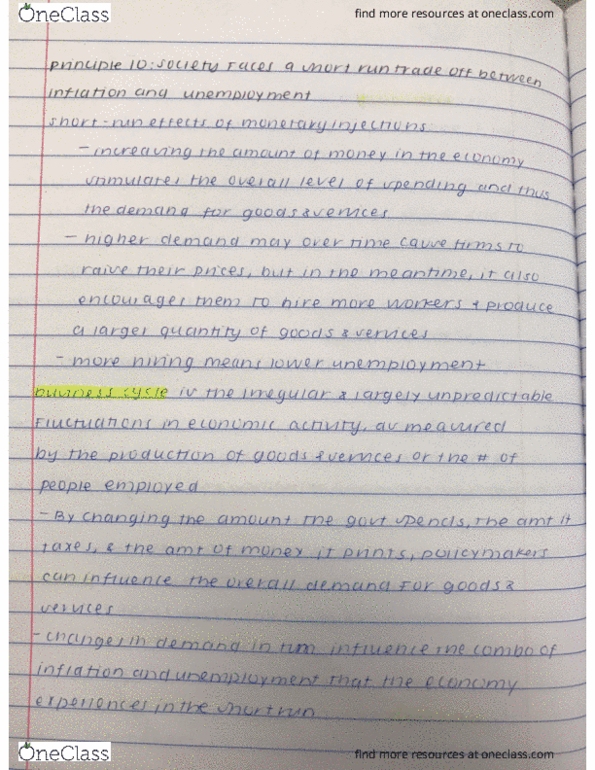 OneClass
find more resources at oneclass.com
principle 10: society faces a short run trade off between
inflation and unemployment
short-run effects of monetary injections
- increasing the amount of money in the economy
stimulates the overall level of spending and thus
the demand for goods & services
- higher demand may over time cause firms to
raise their prices, but in the meantime, it also
encourages them to hire more workers + produce
a larger quantity of goods & services
- more hiring means lower unemployment
business cycle is the irregular & largely unpredictable
fluctuations in economic activity, as measured
by the production of goods & services or the # of
people employed
- By changing the amount the govt spends, the amt it
taxes, & the amt of money it prints, policymakers
can influence the overall demand for goods &
services
- changes in demand in turn influence the combo of
inflation and unemployment that the economy
experiences in the short run
OneClass
find more resources at oneclass.com